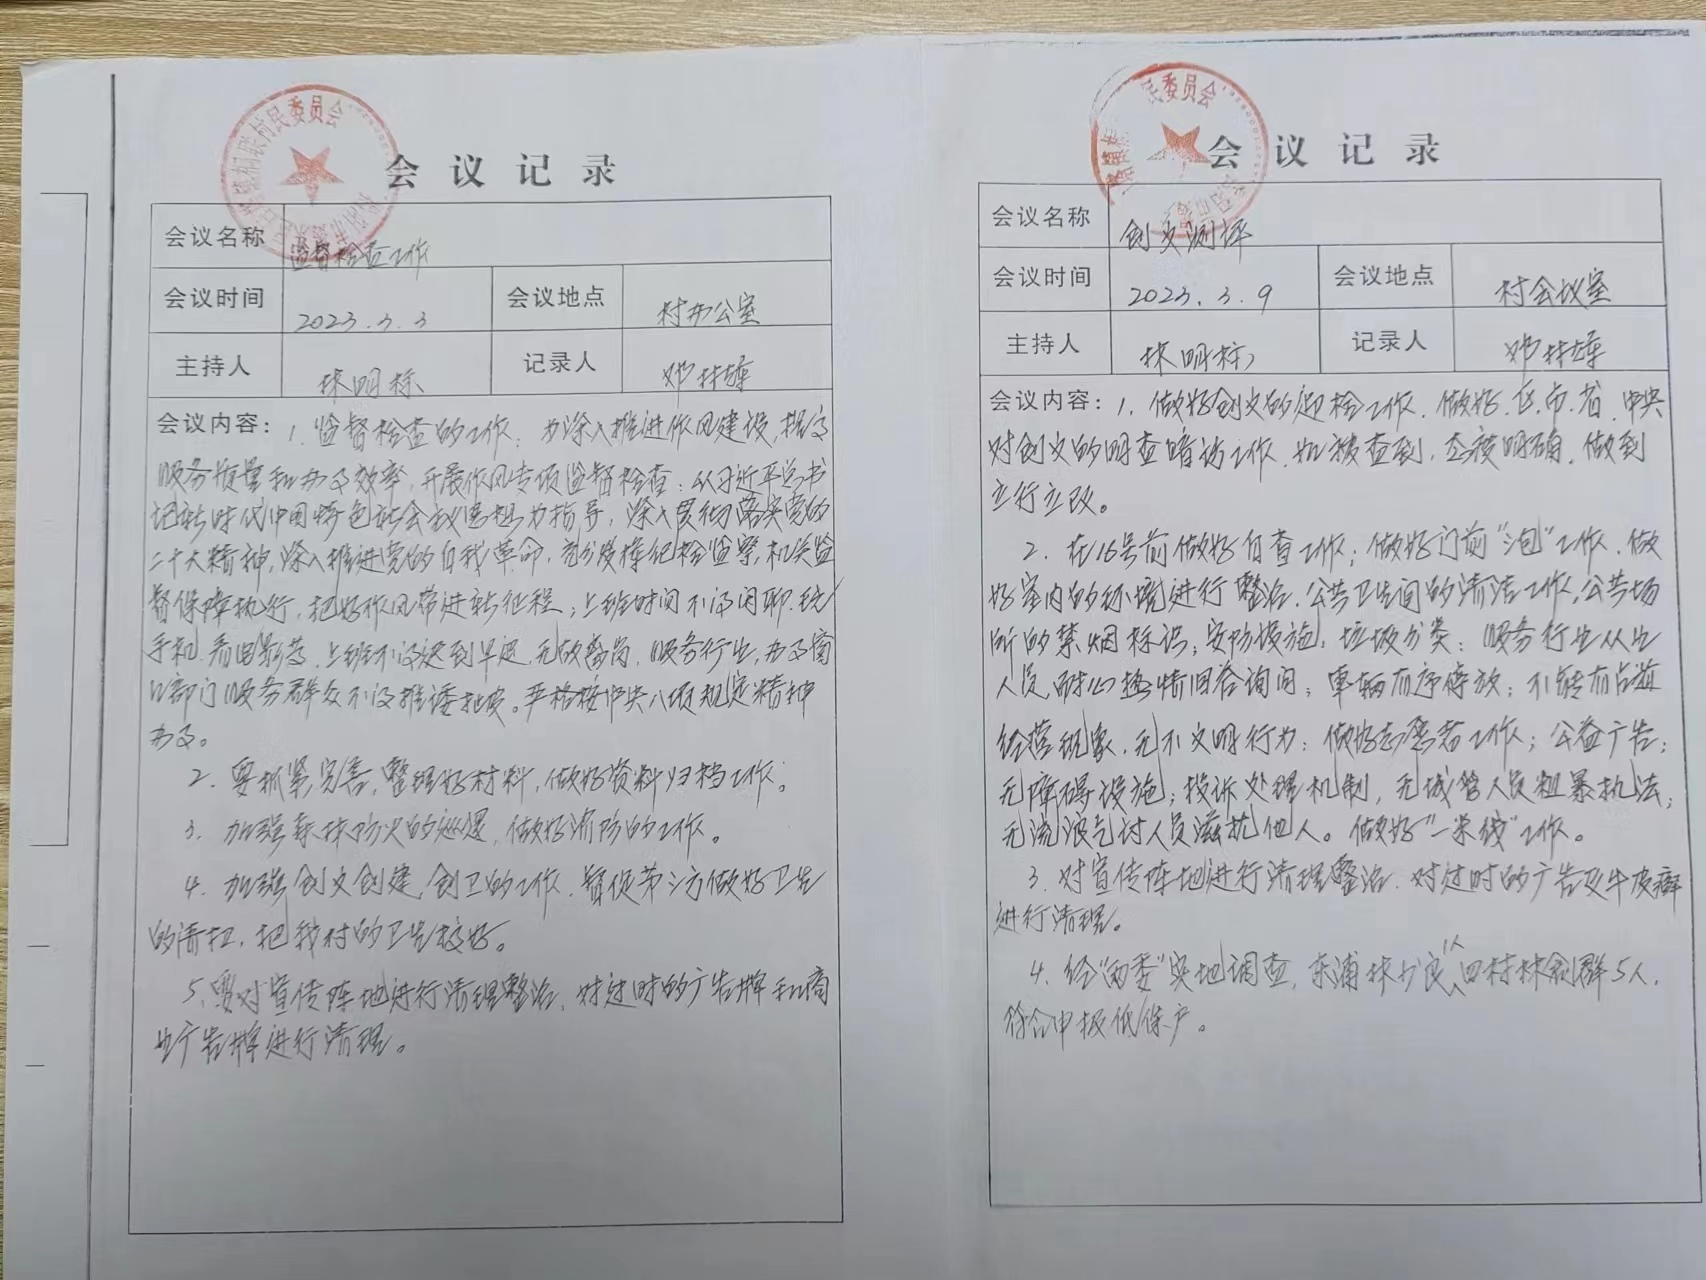 村民委员会
会议记录
会议名称 监督检查工作
会议时间 2023.3.3 会议地点 村办公室
主持人 林明标 记录人 邓林雄
会议内容：1.监督检查的工作：为深入推进作风建设,提及
服务质量和办事效率,开展作风专项监督检查：以习近平总书
记新时代中国特色社会主义思想为指导,深入贯彻落实党的
二十大精神,深入推进党的自我革命,充分发挥纪检监察,机关监
督保障执行,把好作风带进新征程；上班时间不得闲聊.玩
手机.看电影等,上班不得迟到早退,无故离岗,服务行业,办事窗
口部门服务群众不得推诿扯皮。严格按中央八项规定精神
办事。
2.要抓紧完善,整理好材料,做好资料归档工作；
3.加强森林防火的巡逻,做好消防的工作。
4.加强创文创建,创卫的工作.督促第三方做好卫生
的清扫,把我村的卫生搞好。
5.要对宣传阵地进行清理整治,对过时的广告牌和商
业广告牌进行清理。
民委员会
会议记录
会议名称 创文测评
会议时间 2023.3.9 会议地点 村会议室
主持人 林明标 记录人 邓林雄
会议内容：1.做好创文的迎检工作.做好.区.市.省.中央
对创文的明查暗访工作.如被查到,态度明确,做到
立行立改。
2.在16号前做好自查工作；做好门前“三包”工作.做
好室内的环境进行整治.公共卫生间的清洁工作,公共场
所的禁烟标识；安防设施；垃圾分类：服务行业从业
人员,耐心热情回答询问；车辆有序停放；不能有占道
经营现象.无不文明行为：做好志愿者工作；公益广告；
无障碍设施；投诉处理机制,无城管人员粗暴执法；
无流浪乞讨人员滋扰他人。做好“一米线”工作。
3.对宣传阵地进行清理整治.对过时的广告及牛皮癣
进行清理。
4.经“两委”实地调查,东浦林少良1人四村林 群5人,
符合申报低保户。